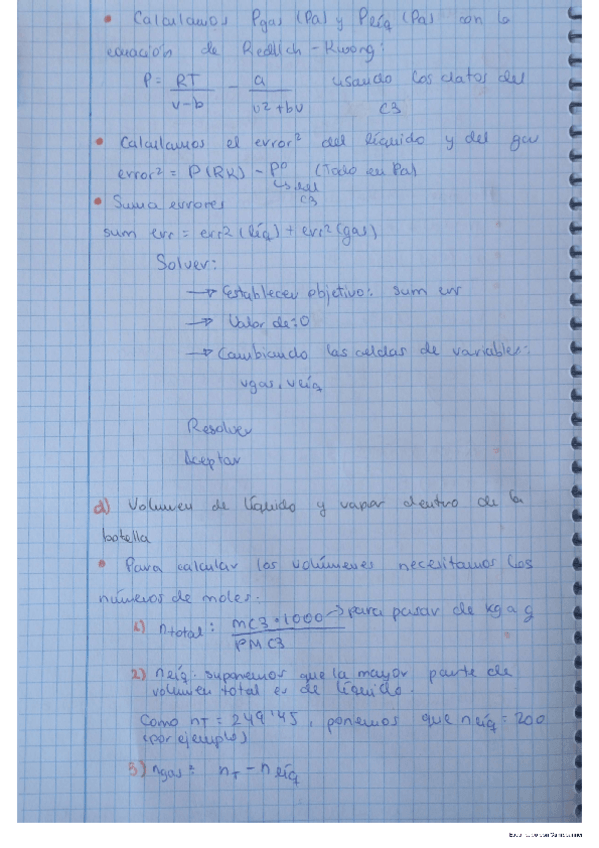 • Calculamos Pgas (Pa) y Plíq (Pa) con la
ecuación de Redlich-Kwong:
P = RT / v-b - a / v2+bv usando los datos del
C3
• Calculamos el error² del líquido y del gas
error² = P(RK) - P° (Todo en Pa)
↳ del
C3
• Suma errores
sum err = err2 (líq) + err2 (gas)
Solver:
→ Establecer objetivo: sum err
→ Valor de: 0
→ Cambiando las celdas de variables:
vgas, vlíq
Resolver
Aceptar
d) Volumen de líquido y vapor dentro de la
botella
• Para calcular los volúmenes necesitamos los
números de moles:
1) ntotal: mC3·1000 / PMC3 → para pasar de kg a g
2) nlíq: suponemos que la mayor parte de
volumen total es de líquido.
Como nT = 249'45, ponemos que nlíq = 200
(por ejemplo)
3) ngas = nT - nlíq